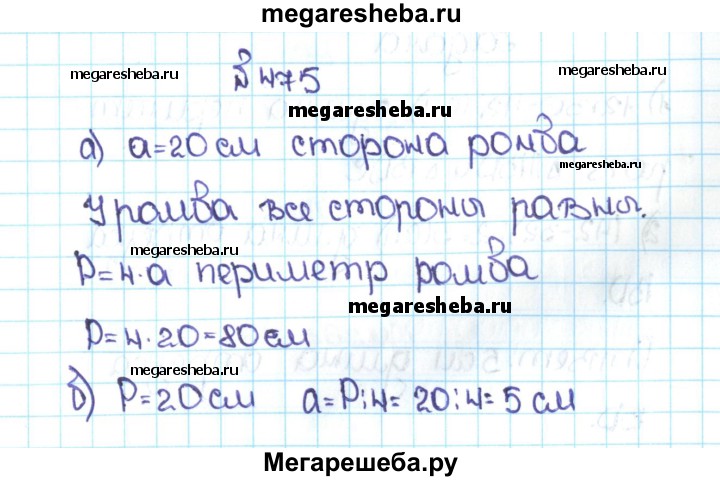 megaresheba.ru
№475
megaresheba.ru
megaresheba.ru
megaresheba.ru
а) a=20 см сторона ромба
megaresheba.ru
У ромба все стороны равны.
megaresheba.ru
P=4·a периметр ромба
megaresheba.ru
P=4·20=80см
megaresheba.ru
б) P=20см a=P:4=20:4=5 см
Мегарешеба.ру